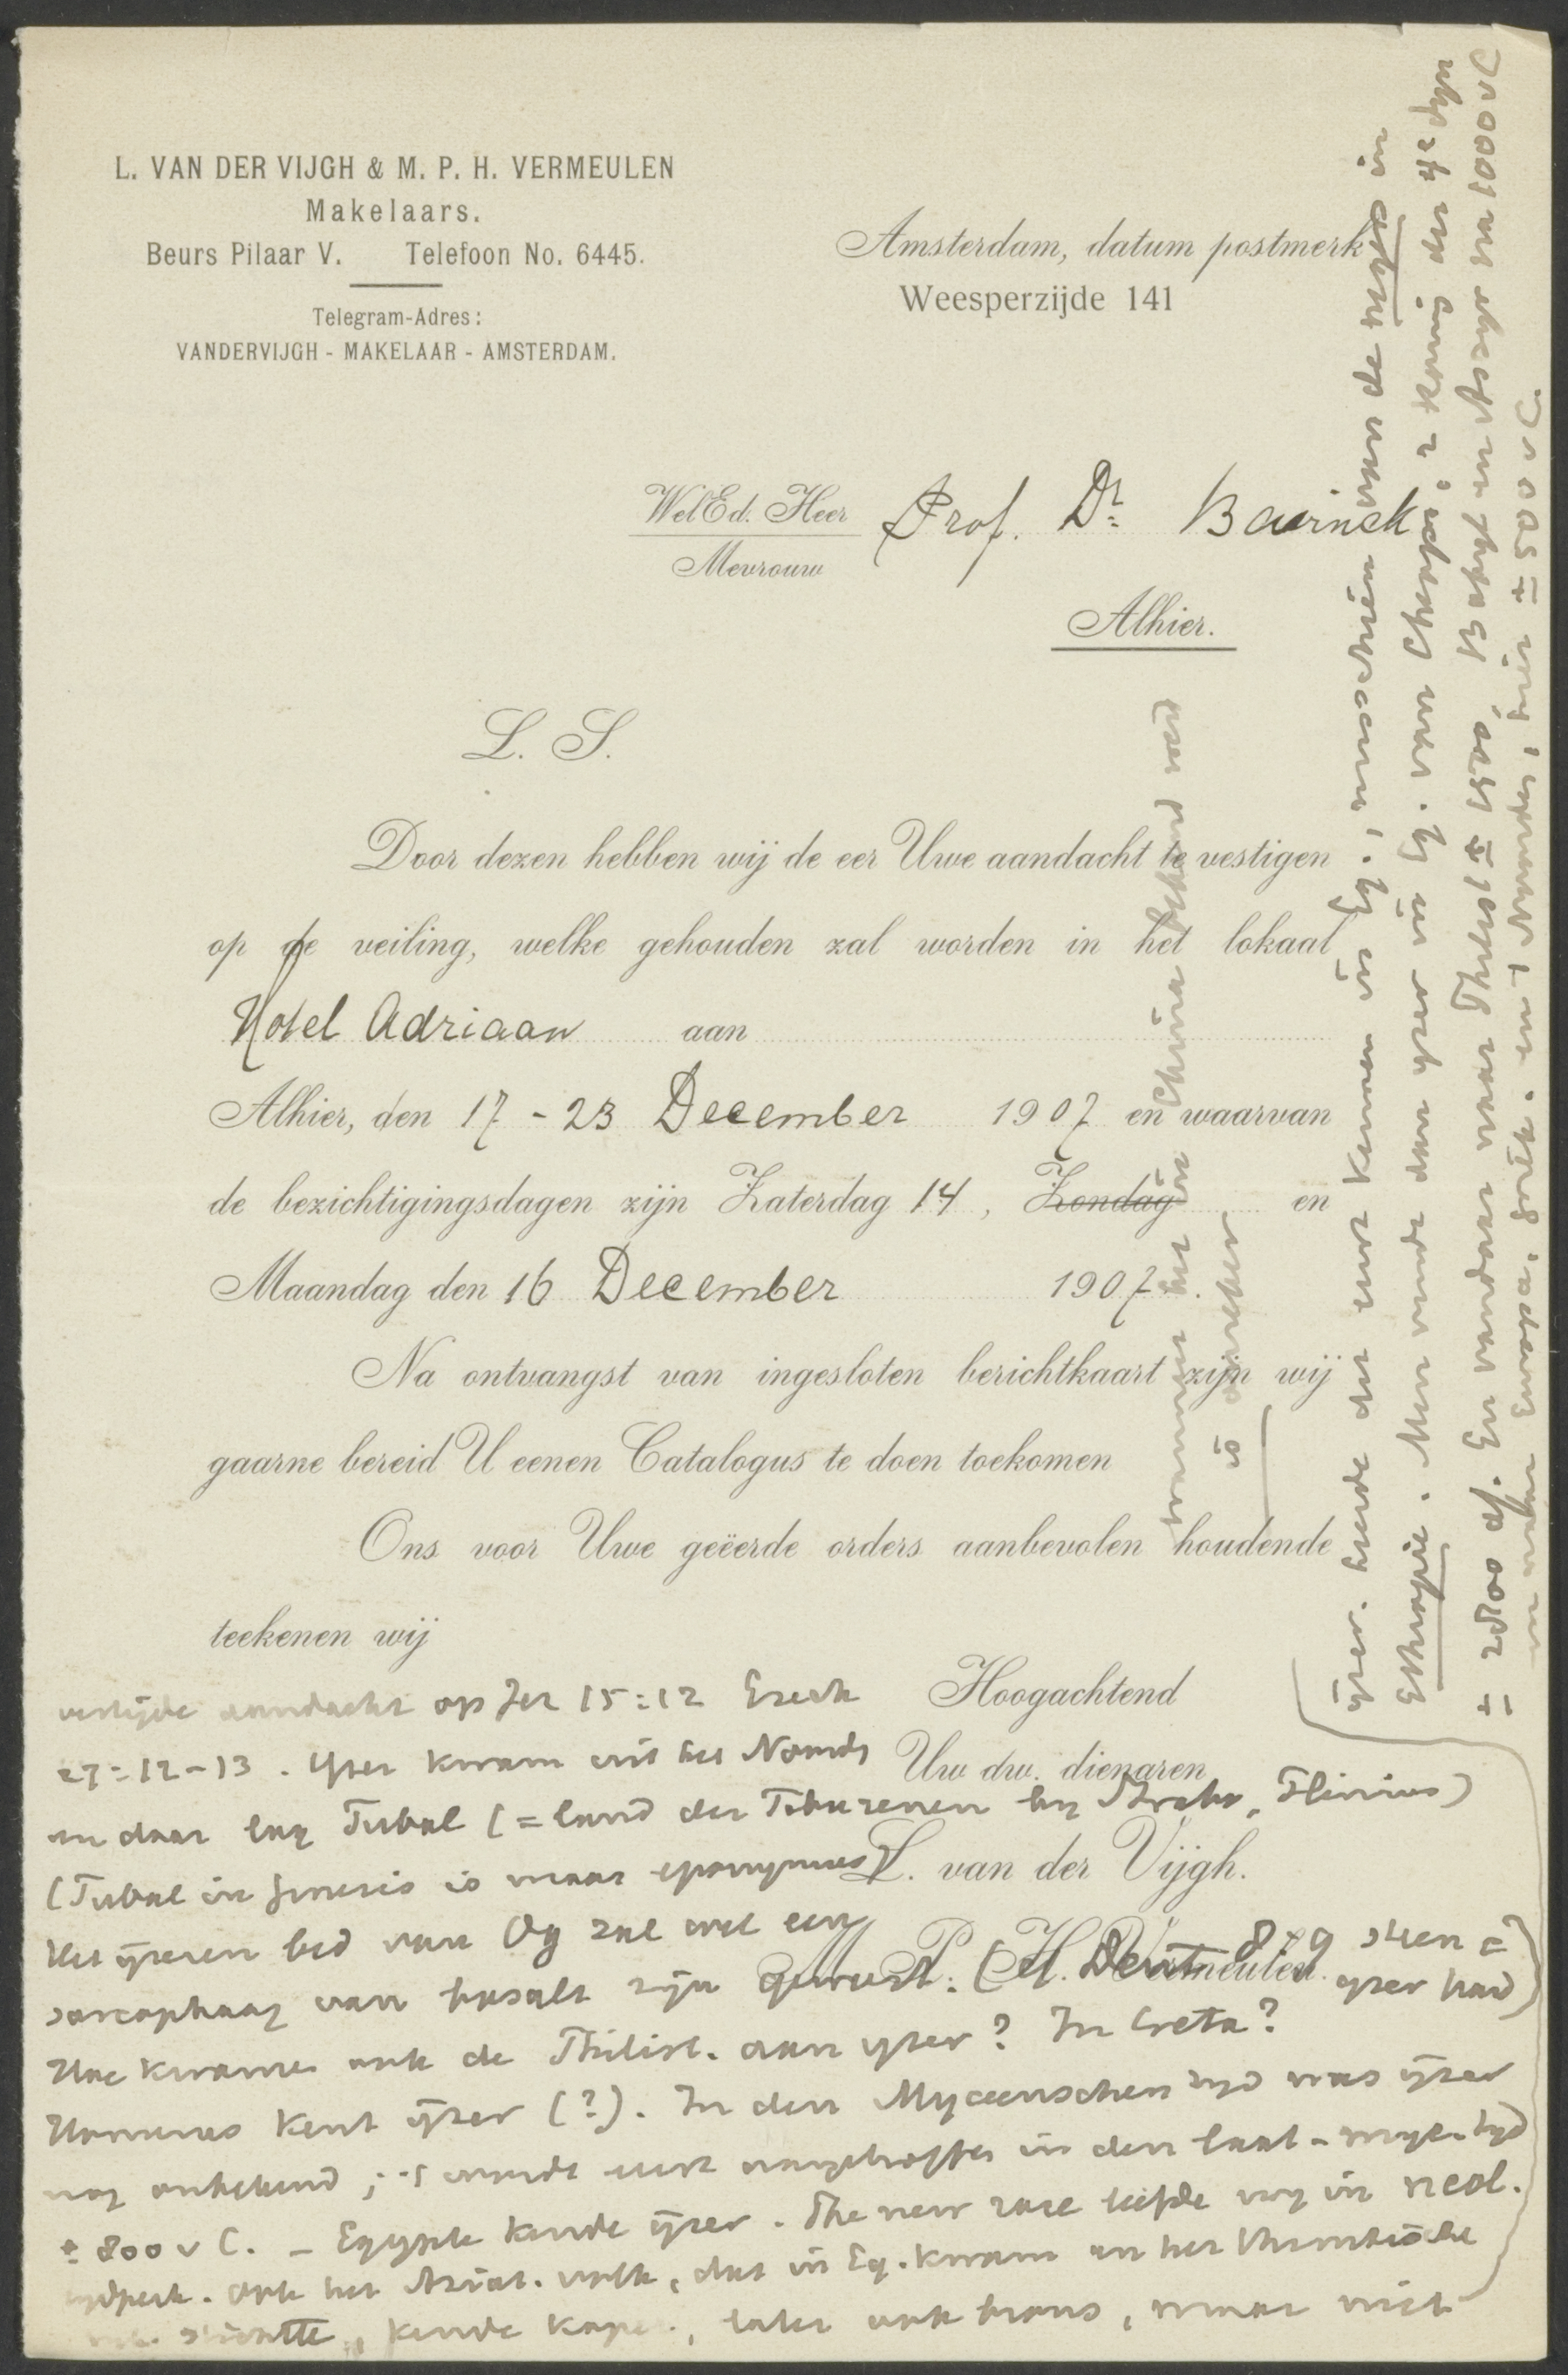 L. VAN DER VIJGH & M. P. H. VERMEULEN
Makelaars.
Beurs Pilaar V. Telefoon No. 6445.
Telegram-Adres:
VANDERVIJGH - MAKELAAR - AMSTERDAM.
Amsterdam, datum postmerk
Weesperzijde 141
WelEd. Heer Prof. Dr. Bavinck
Mevrouw
Alhier.
L. S.
Door dezen hebben wij de eer Uwe aandacht te vestigen
op de veiling, welke gehouden zal worden in het lokaal
Hotel Adriaan aan
Alhier, den 17 - 23 December 1907 en waarvan
de bezichtigingsdagen zijn Zaterdag 14, Zondag en
Maandag den 16 December 1907.
Na ontvangst van ingesloten berichtkaart zijn wij
gaarne bereid U eenen Catalogus te doen toekomen
Ons voor Uwe geëerde orders aanbevolen houdende
teekenen wij
Hoogachtend
Uw dw. dienaren
L. van der Vijgh.
M. P. H. Vermeulen.
vestigde aandacht op Jer 15:12 Ezech
27:12-13. Yzer kwam uit het Noord
en daar lag Tubal (= land der Tibarenen by Strabo, Plinius)
(Tubal in Genesis is maar eponymus)
Het ijzeren bed van Og zal wel een
sarcophaag van basalt zijn geweest. (cf. Deut 8:9 steen =
yzer had)
Hoe kwamen ook de Philist. aan yzer? In Creta?
Homerus kent ijzer (?). In den Myceenschen tyd was ijzer
nog onbekend; 't wordt eerst aangetroffen in den laat-myc. tyd
± 800 v C. - Egypte kende ijzer. The new race leefde nog in neol.
tydperk. Ook het Aziat. volk, dat in Eg. kwam en het
stichtte, kende koper, later ook brons, maar niet
ijzer. leerde dit eerst kennen in Eg., misschien van de negers in
Ethiopie. Men vindt dan yzer in Eg. van Cheops, 2e koning der 4e dyn
± 2800 af. En vandaar naar Phen. ± 1500, Babyl. en Assyr na 1000 v C
en naar Europa, Griek. en 't Noorden, hier ± 500 v C.
wanneer het in China bekend werd
is onzeker